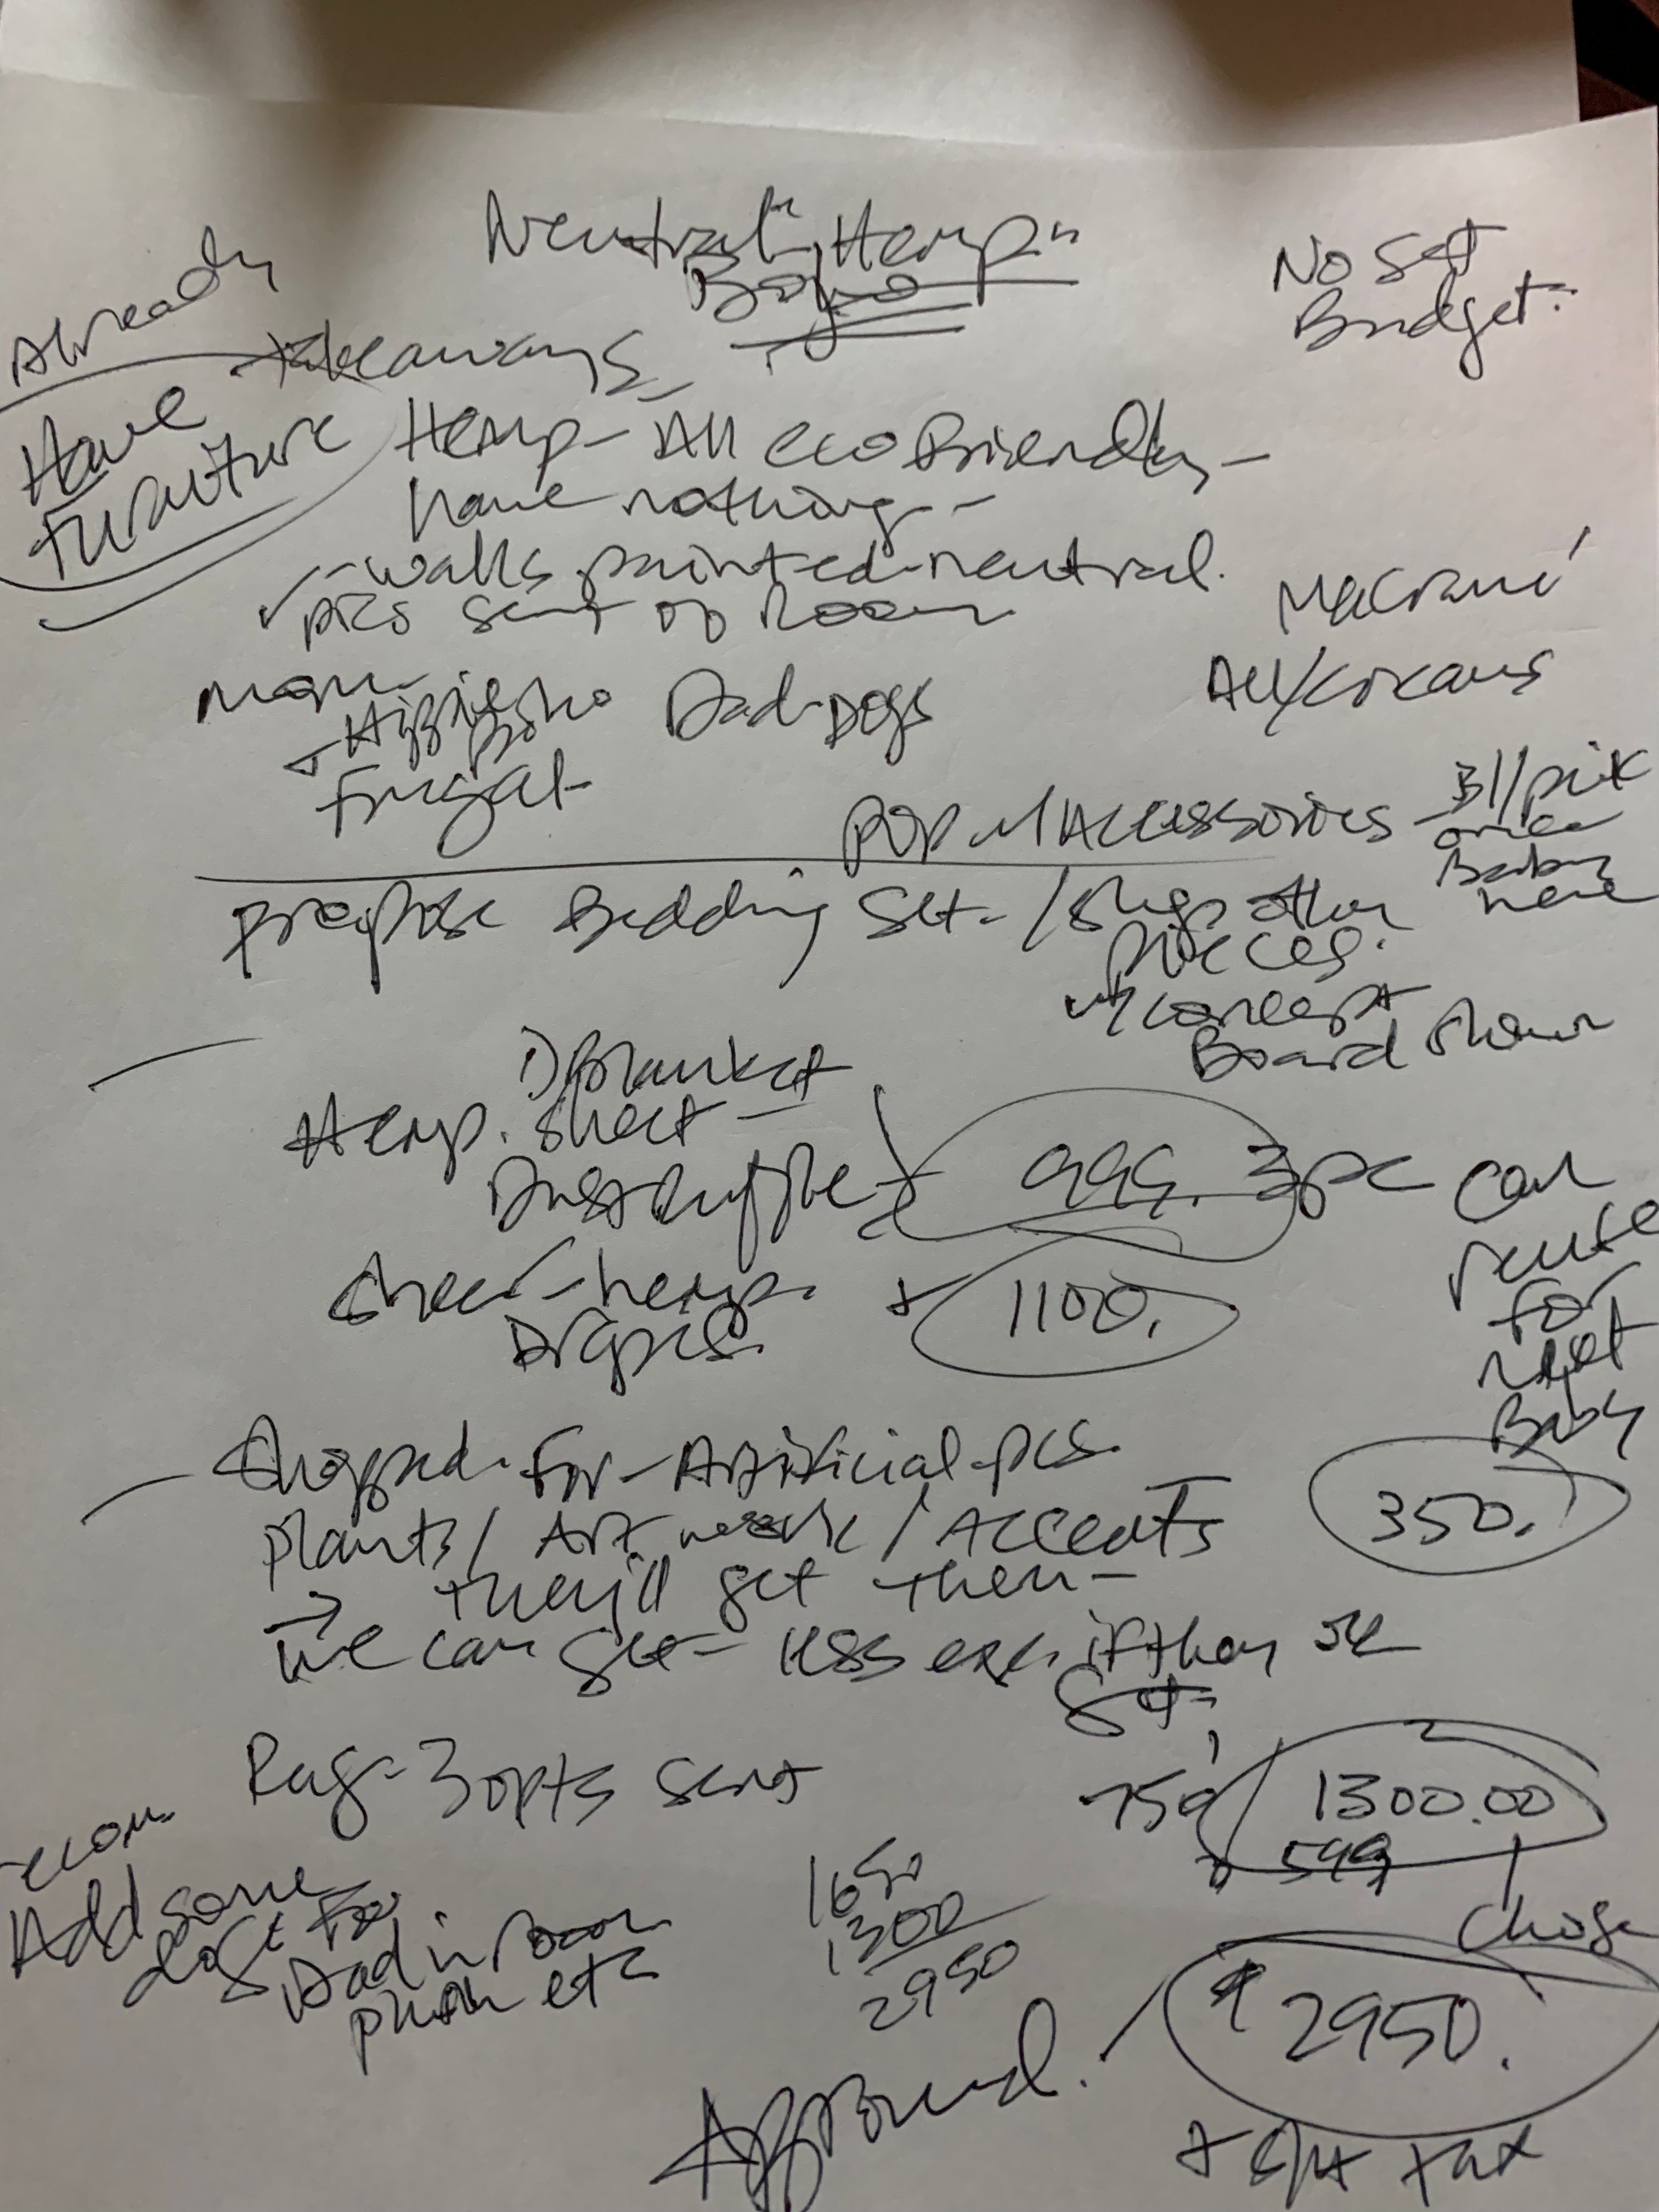 Neutral "Hemp"
Boho
No Set
Budget.
Already
Have
Furniture
takeaways
Hemp - All eco friendly -
have nothing -
✓ - walls painted - neutral.
pics sent of Room
Macramé
All/creams
mom -
Hippie Boho
Frugal -
Dad - Dogs
Pop w/ Accessories -
pick
once
Baby
here
Propose Bedding Set - / other
pieces.
w/ concept
Board
1) Blanket
Hemp. Sheet -
Dust ruffle
999. 3pc
can
reuse
for
next
Baby
Sheer - hemp.
Drapes.
+ 1100.
- Shopped - for - Artificial - pcs.
plants / Art work / Accents
350.
→ they'll get them -
we can get - less exp. if they
Rug - 3 opts sent
759
1300.00
599
chose
recom.
Add some
for
Dad in Room
etc
1650
1300
2950
Approved.
$2950.
+ tax